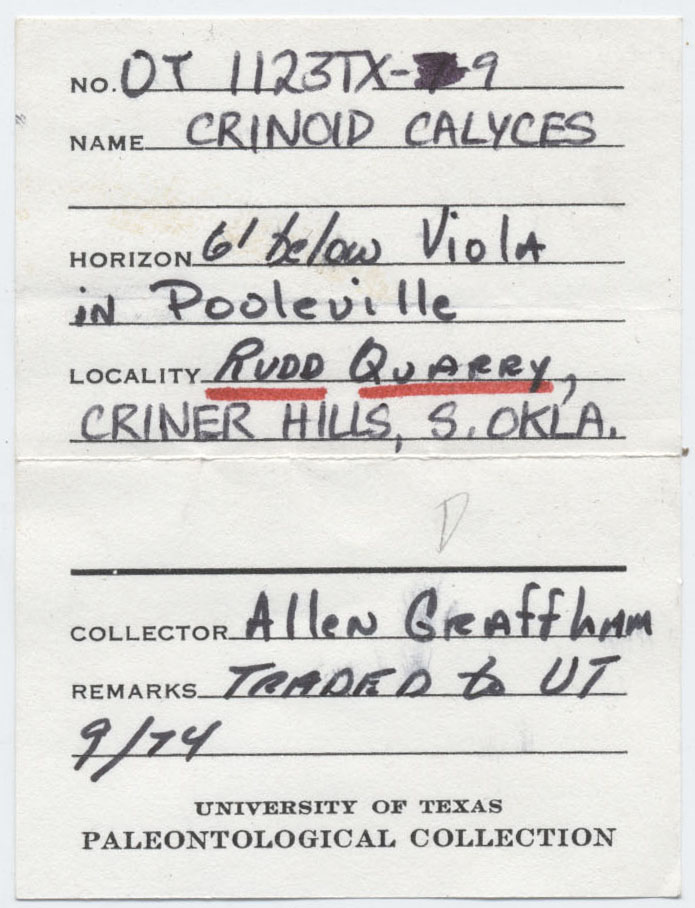 NO. OT 1123TX-9
NAME CRINOID CALYCES
HORIZON 6' below Viola
in Pooleville
LOCALITY RUDD QUARRY,
CRINER HILLS, S. OKLA.
D
COLLECTOR Allen Graffham
REMARKS TRADED to UT
9/74
UNIVERSITY OF TEXAS
PALEONTOLOGICAL COLLECTION